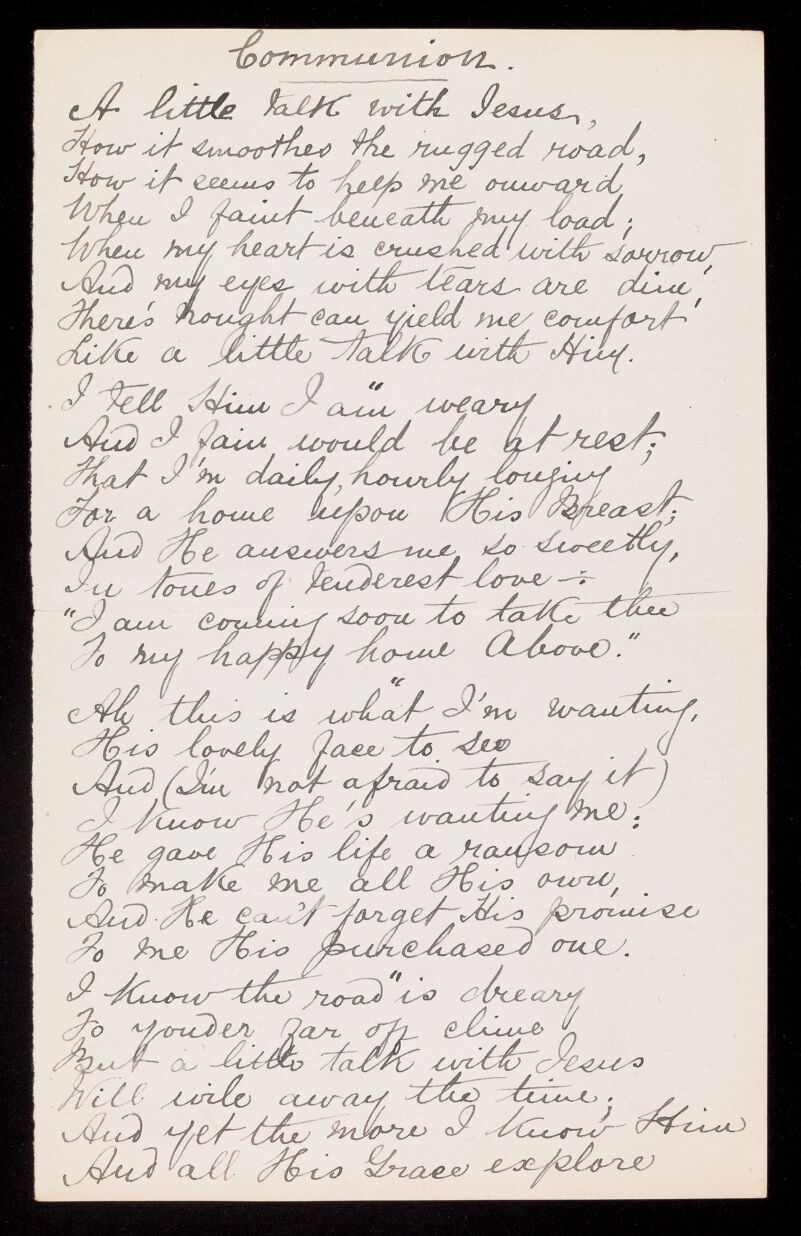 Communion.
A little talk with Jesus,
How it smoothes the rugged road,
How it seems to help me onward,
When I faint beneath my load;
When my heart is crushed with sorrow,
And my eyes with tears are dim,
There's nought can yield me comfort
Like a little talk with Him.
I tell Him I am weary
And I fain would be at rest;
That I'm daily, hourly longing
For a home upon His Breast;
And He answers me so sweetly,
In tones of tenderest love -:
"I am coming soon to take thee
To my happy home Above."
Ah this is what I'm wanting,
His lovely face to see
And (I'm not afraid to say it)
I know He's wanting me:
He gave His life a ransom
To make me all His own,
And He can't forget His promise
To me His purchased one.
I know the road is dreary
To yonder far off clime
But a little talk with Jesus
Will wile away the time;
And yet the more I know Him
And all His Grace explore